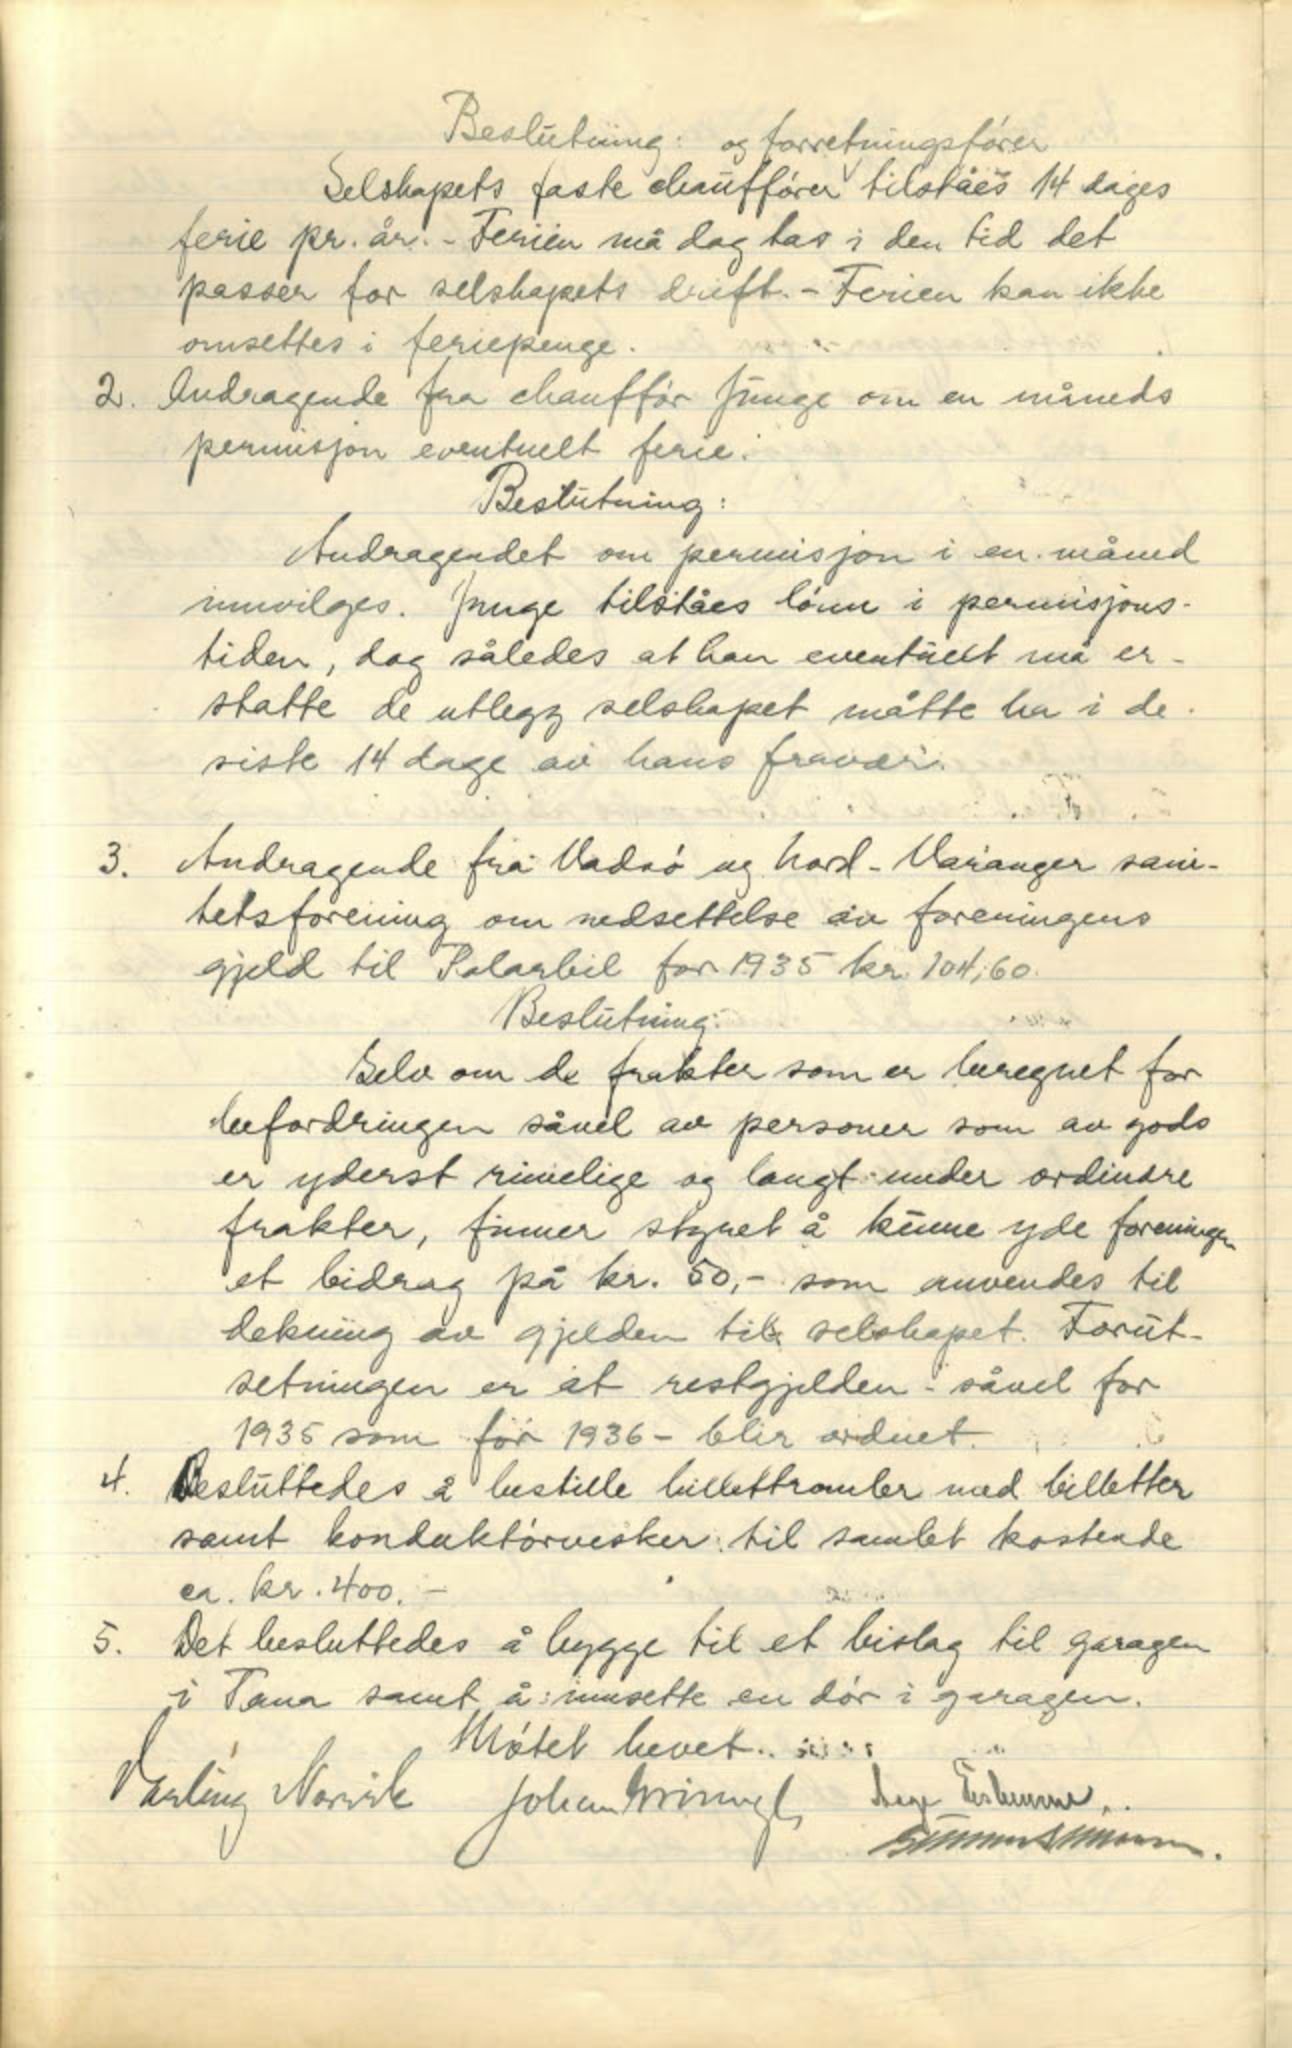 Beslutning: og forretningsfører
Selskapets faste chauffører tilståes 14 dages
ferie pr. år. - Ferien må dog tas i den tid det
passer for selskapets drift. - Ferien kan ikke
omsettes i feriepenge.
2. Andragende fra chauffør Junge om en måneds
permisjon eventuelt ferie.
Beslutning:
Andragendet om permisjon i en måned
innvilges. Junge tilståes lønn i permisjons-
tiden, dog således at han eventuelt må er-
statte de utlegg selskapet måtte ha i de
siste 14 dage av hans fravær.
3. Andragende fra Vadsø og Nord-Varanger sani-
tetsforening om nedsettelse av foreningens
gjeld til Polarbil for 1935 kr. 104,60.
Beslutning:
Selv om de frakter som er beregnet for
befordringen såvel av personer som av gods
er yderst rimelige og langt under ordinære
frakter, finner styret å kunne yde foreningen
et bidrag på kr. 50,- som anvendes til
dekning av gjelden til selskapet. Forut-
setningen er at restgjelden - såvel for
1935 som for 1936 - blir ordnet.
4. Besluttedes å bestille billettromler med billetter
samt konduktørvesker til samlet kostende
ca. kr. 400.-
5. Det besluttedes å bygge til et bislag til garagen
i Tana samt å innsette en dør i garagen.
Møtet hevet.
Johan